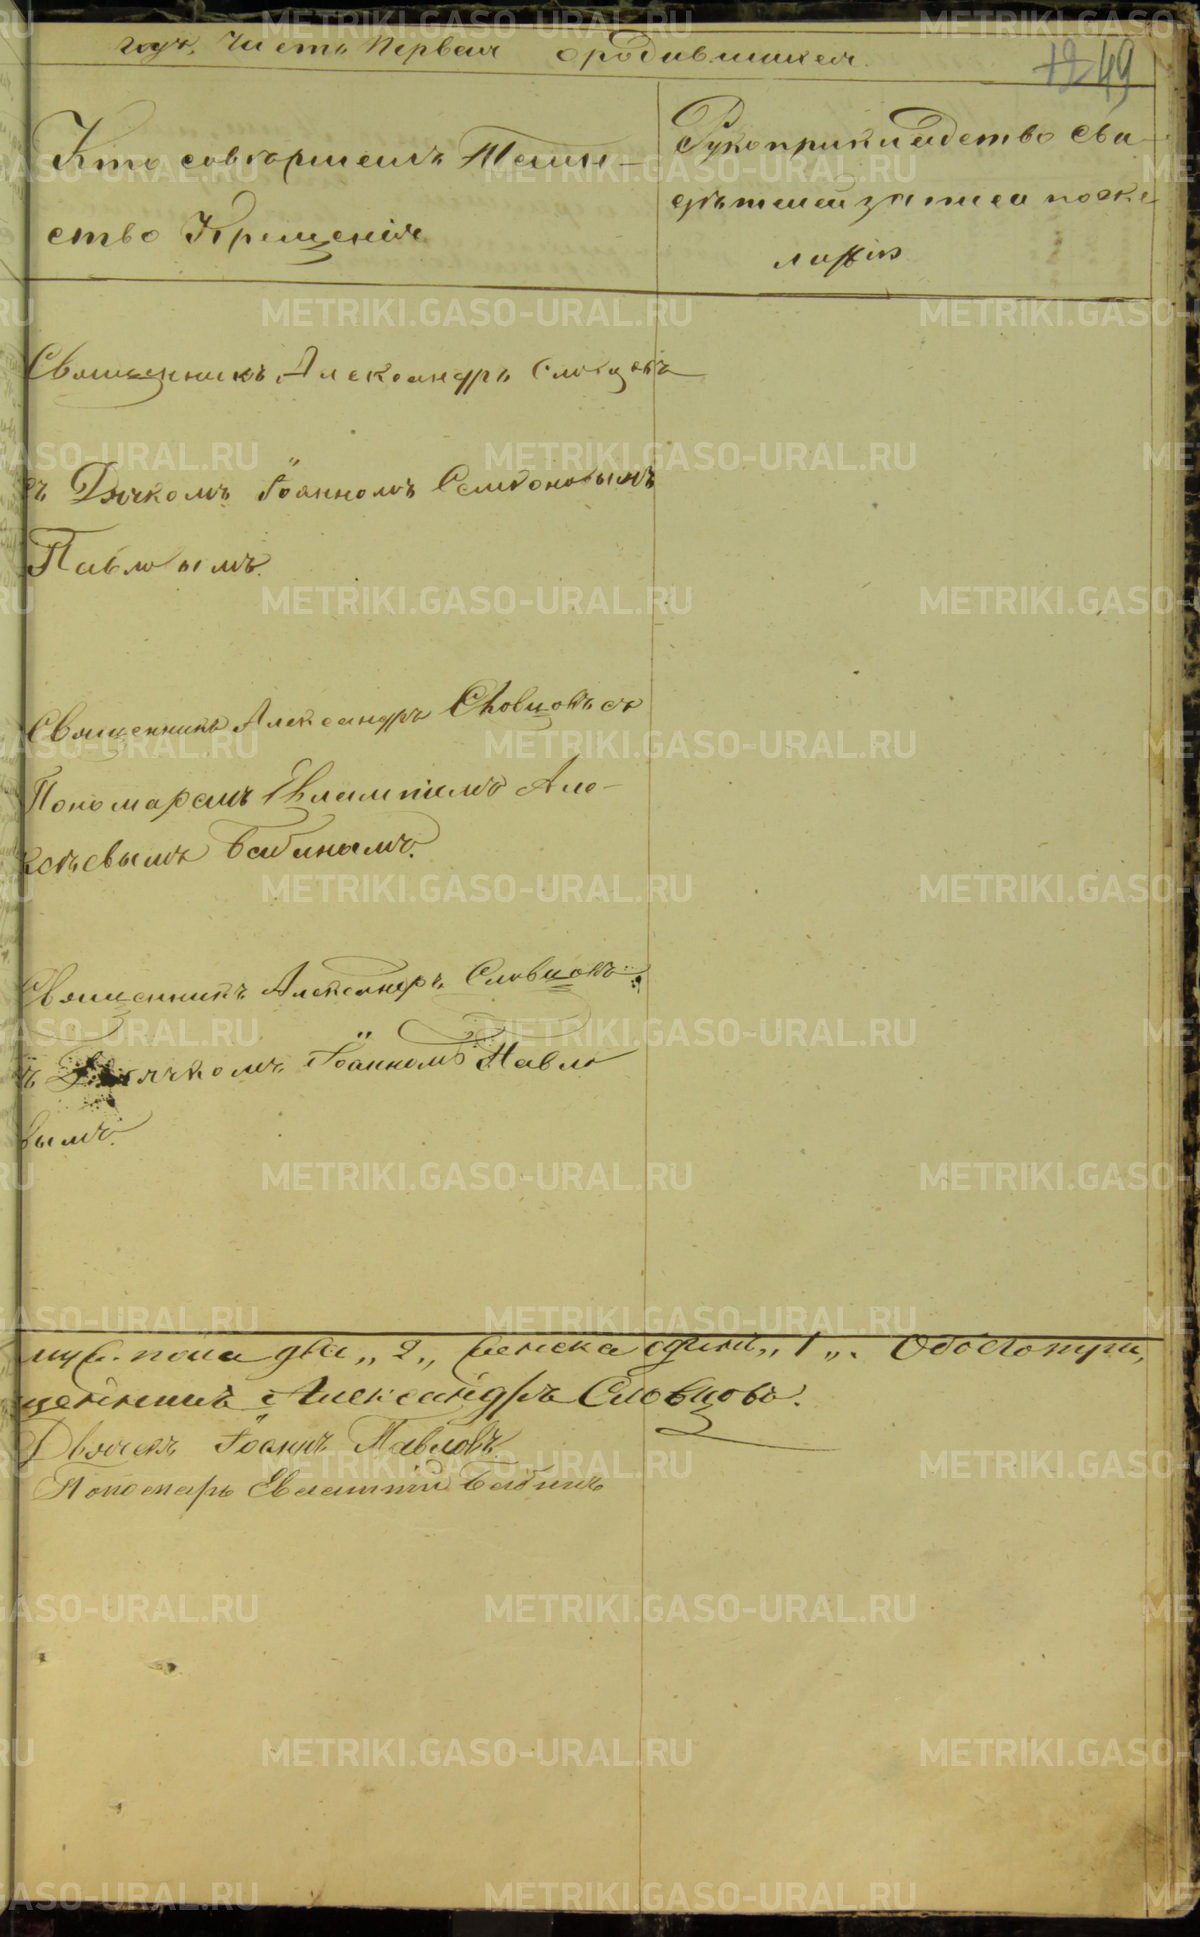 годъ, Часть Первая о родившихся.
12 49
Кто совершалъ Таин-
ство Крещенія
Рукоприкладство сви-
дѣтелей записи по же-
ланію
Священникъ Александръ Словцовъ
съ Дьячкомъ Іоанномъ Семеновымъ
Павловымъ.
Священникъ Александръ Словцовъ съ
Пономаремъ Евлампіемъ Але-
ксѣевымъ Бабинымъ.
Священникъ Александръ Словцовъ
съ Дьячкомъ Іоанномъ Павло
вымъ.
муж. пола два „2„ женска одинъ „1„. Обоего
щенникъ Александръ Словцовъ.
Дьячекъ Іоаннъ Павловъ
Пономарь Евлампій Бабинъ
METRIKI.GASO-URAL.RU